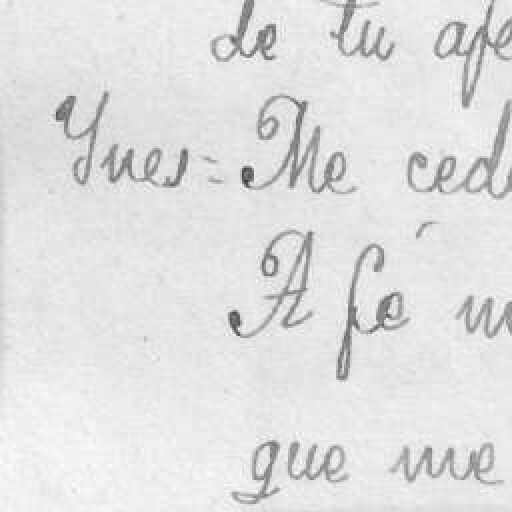 de tu afe
Ynes= Me ced
A fé m
que me